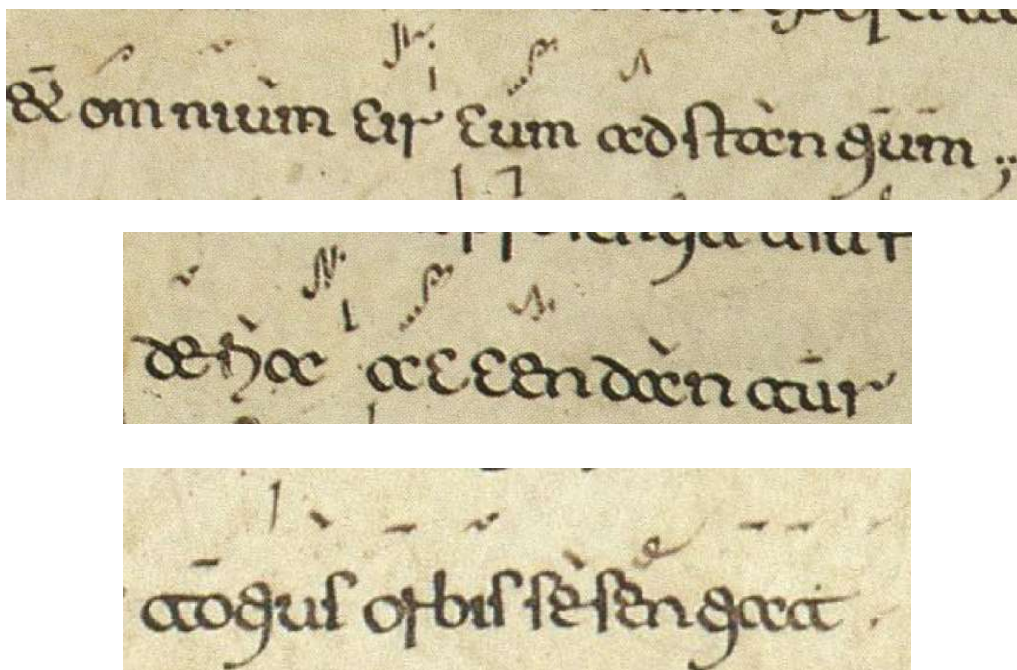 & omnium cir cum adstantium ;
de hoc accendantur
totius orbis se sentiat